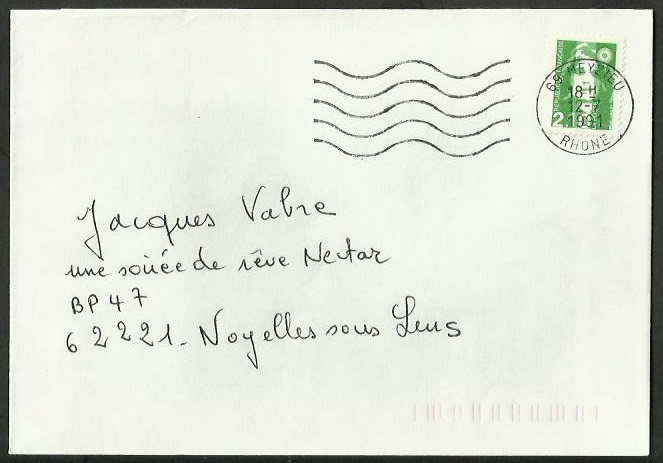 69 MEYZIEU
18 H
12-
1991
RHONE
2
Jacques Vabre
une soirée de rêve Nectar
BP 47
62221. Noyelles sous Lens